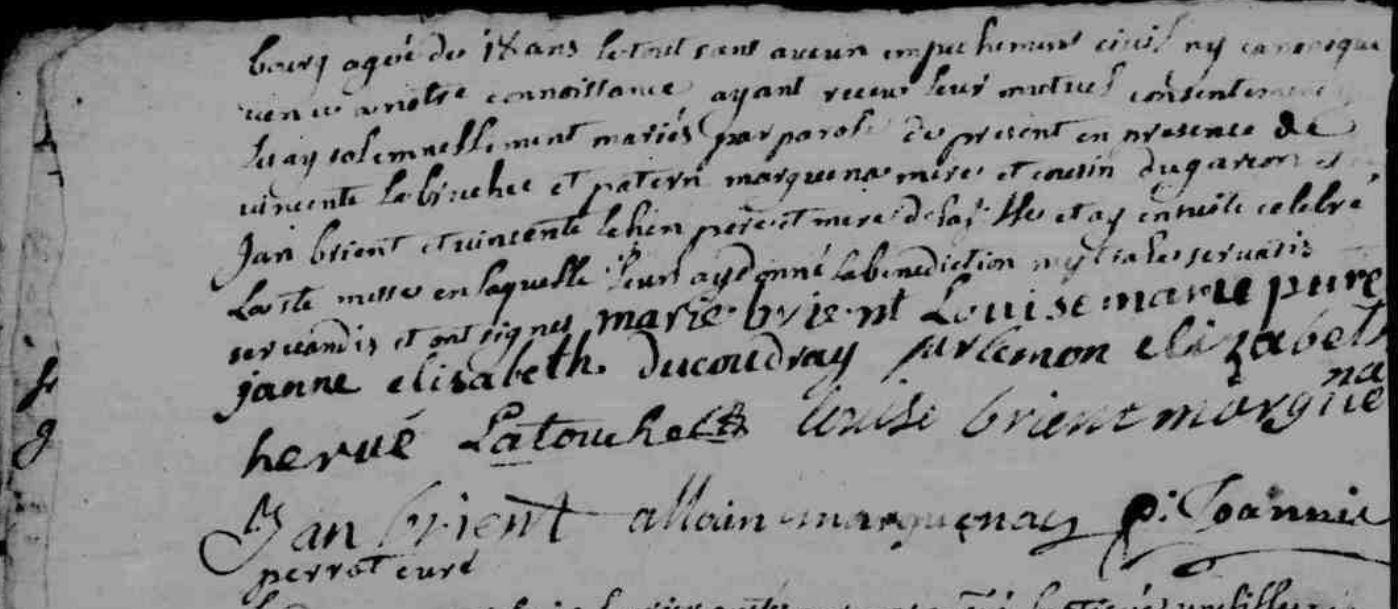 bourg agée de 18 ans le tout sans aucun empechement civil ny canonique
venu a notre connoissance ayant receu leur mutuel consentement
les ay solemnellement mariés par parole de present en presence de
vincente le bruchec et patern marquena mere et cousin du garson et
Jan brient et vincente lehen pere et mere de la fille et ay ensuite celebré
la ste messe en laquelle leur ay donné la benediction servatis
servandis et ont signes marie brient Louise marie pure
janne elisabeth ducoudray elizabeth
hervé Latouche louise brient morgne
na
Jan brient allain marquenay p: Joannic
perrot curé